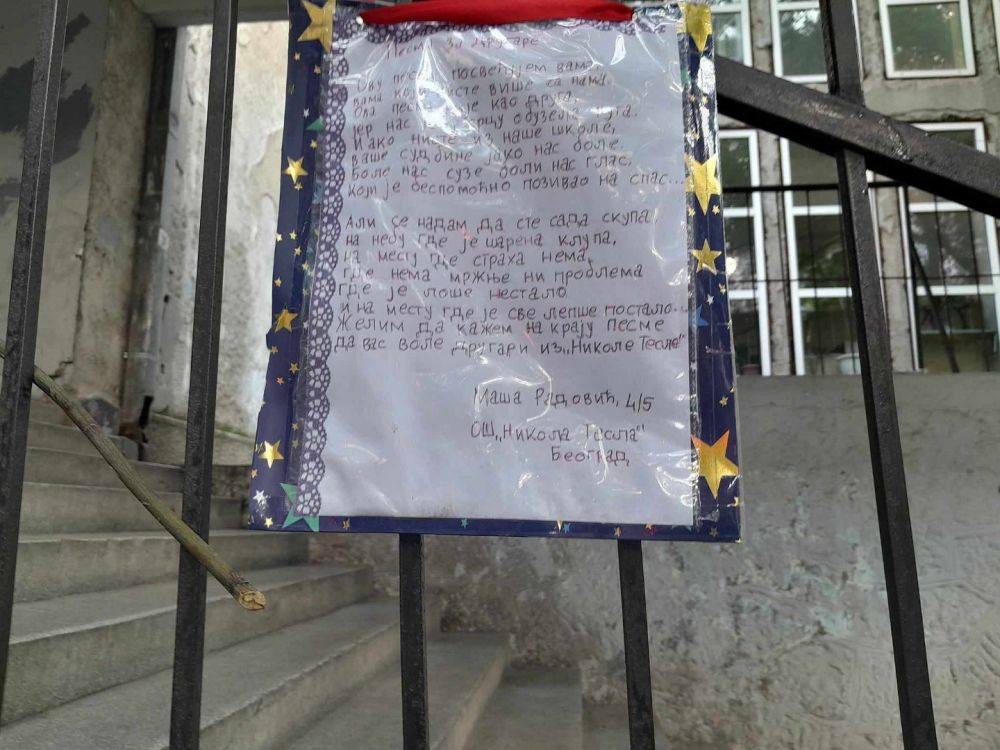 Песма за другаре
Ову песму посвећујем вама,
вама који нисте више са нама.
Ова песма није као друга,
јер нас је у срцу обузела туга.
И ако нисте из наше школе,
ваше судбине јако нас боле.
Боле нас сузе боли нас глас,
који је беспомоћно позивао на спас...
Али се надам да сте сада скупа
на небу где је шарена клупа,
на месту где страха нема,
где нема мржње ни проблема
где је лоше нестало
и на месту где је све лепше постало...
Желим да кажем на крају песме
да вас воле другари из „Николе Тесле"
Маша Радовић, 4/5
ОШ „Никола Тесла"
Београд